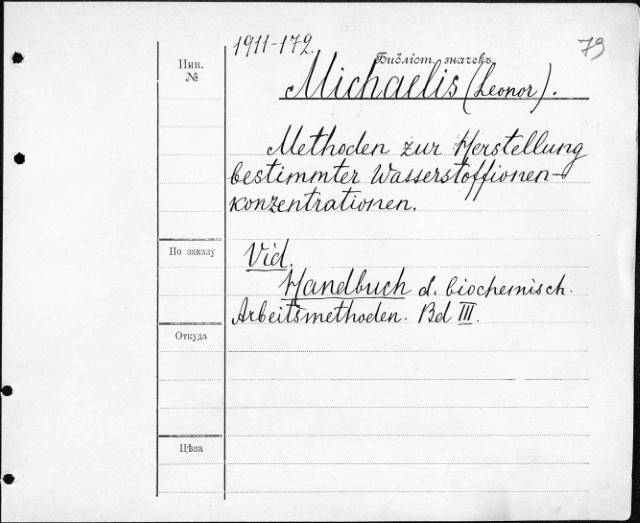 1911-172.
79
Инв.
№
Библіот. значекъ
Michaelis (Leonor).
Methoden zur Herstellung
bestimmter Wasserstoffionen-
konzentrationen.
По заказу
Vid.
Handbuch d. biochemisch.
Arbeitsmethoden. Bd III.
Откуда
Цѣна